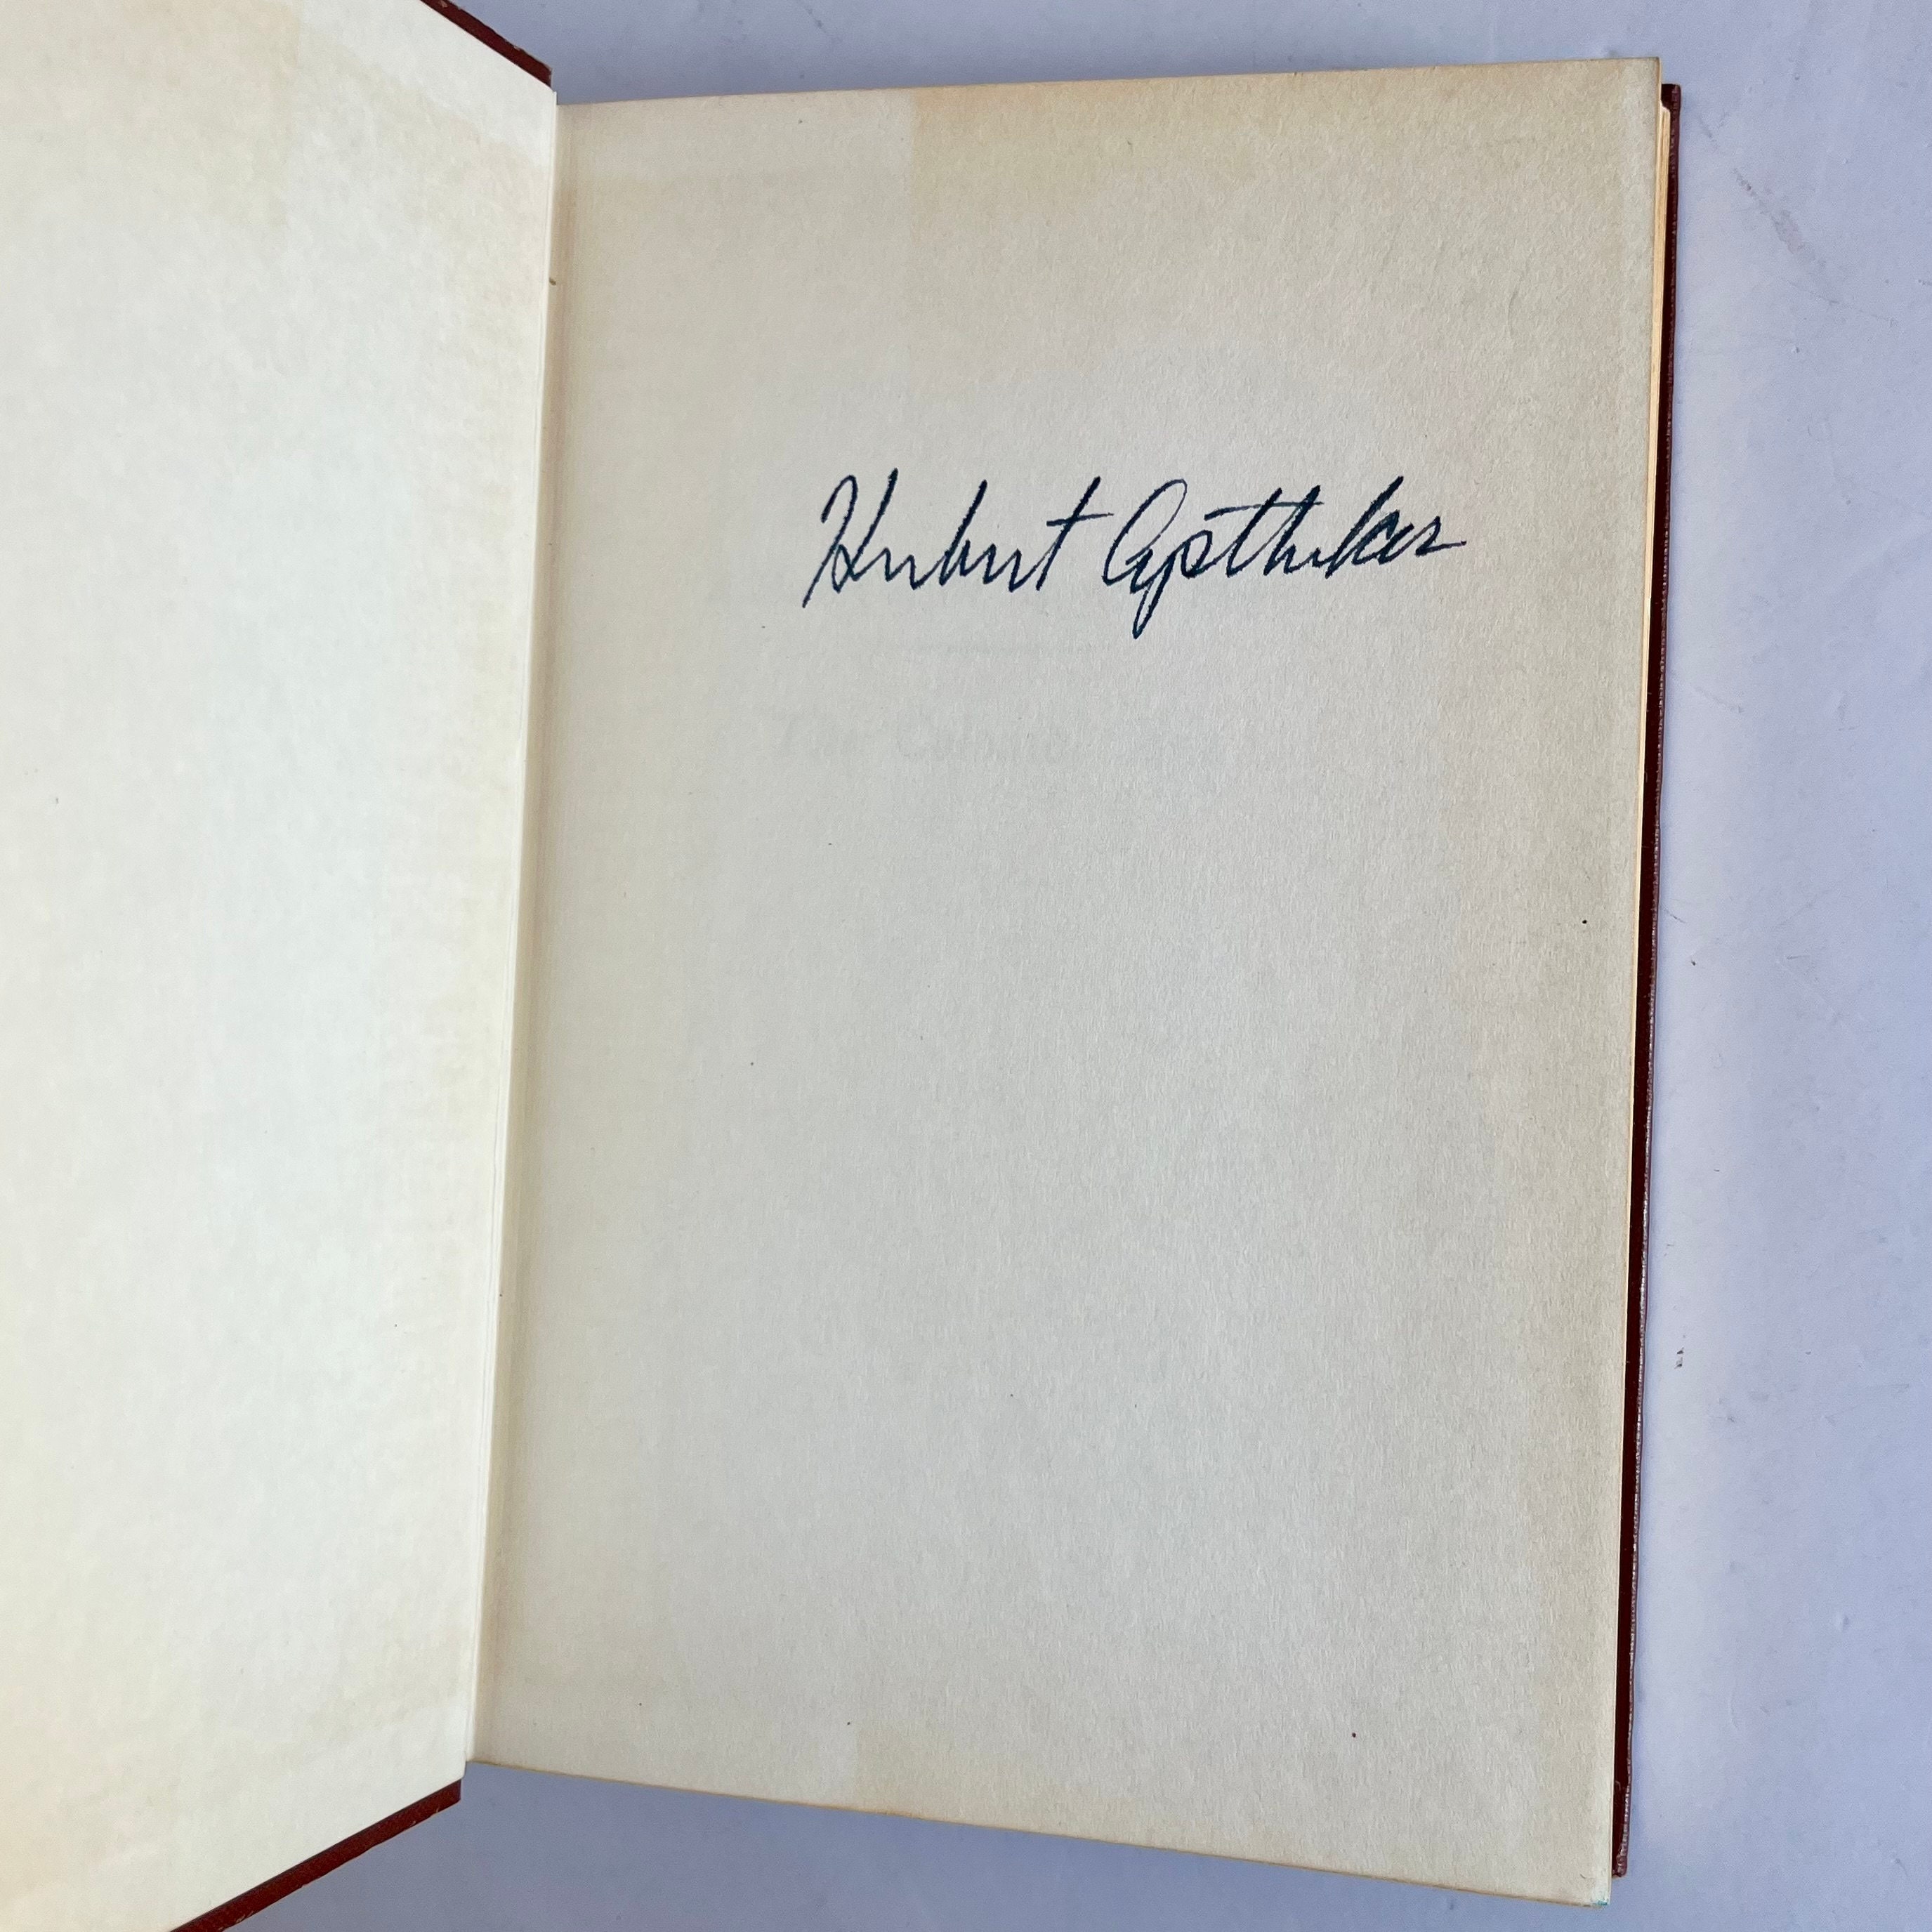 Herbert Aptheker